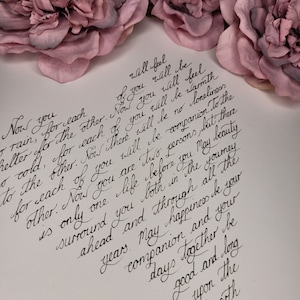 Now you will feel
rain, for each of you will be
helter for the other. Now you will feel
o cold, for each of you will be warmth
to the other. Now there will be no loneliness
for each of you will be companion to the
other. Now you are two persons, but there
is only one life before you. May beauty
surround you both in the journey
ahead and through all the
years. May happiness be your
companion and your
days together be
good and long
upon the
rth